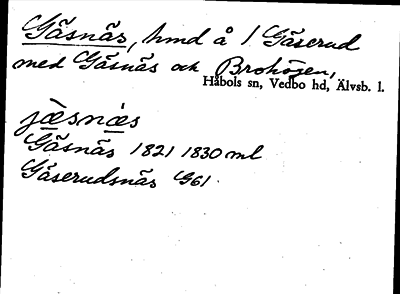 Gäsnäs, hmd å 1 Gäserud
med Gäsnäs och Brohögen,
Håbols sn, Vedbo hd, Älvsb. l.
jæ̀snæ̀s
Gäsnäs 1821 1830 ml
Gäserudsnäs G61